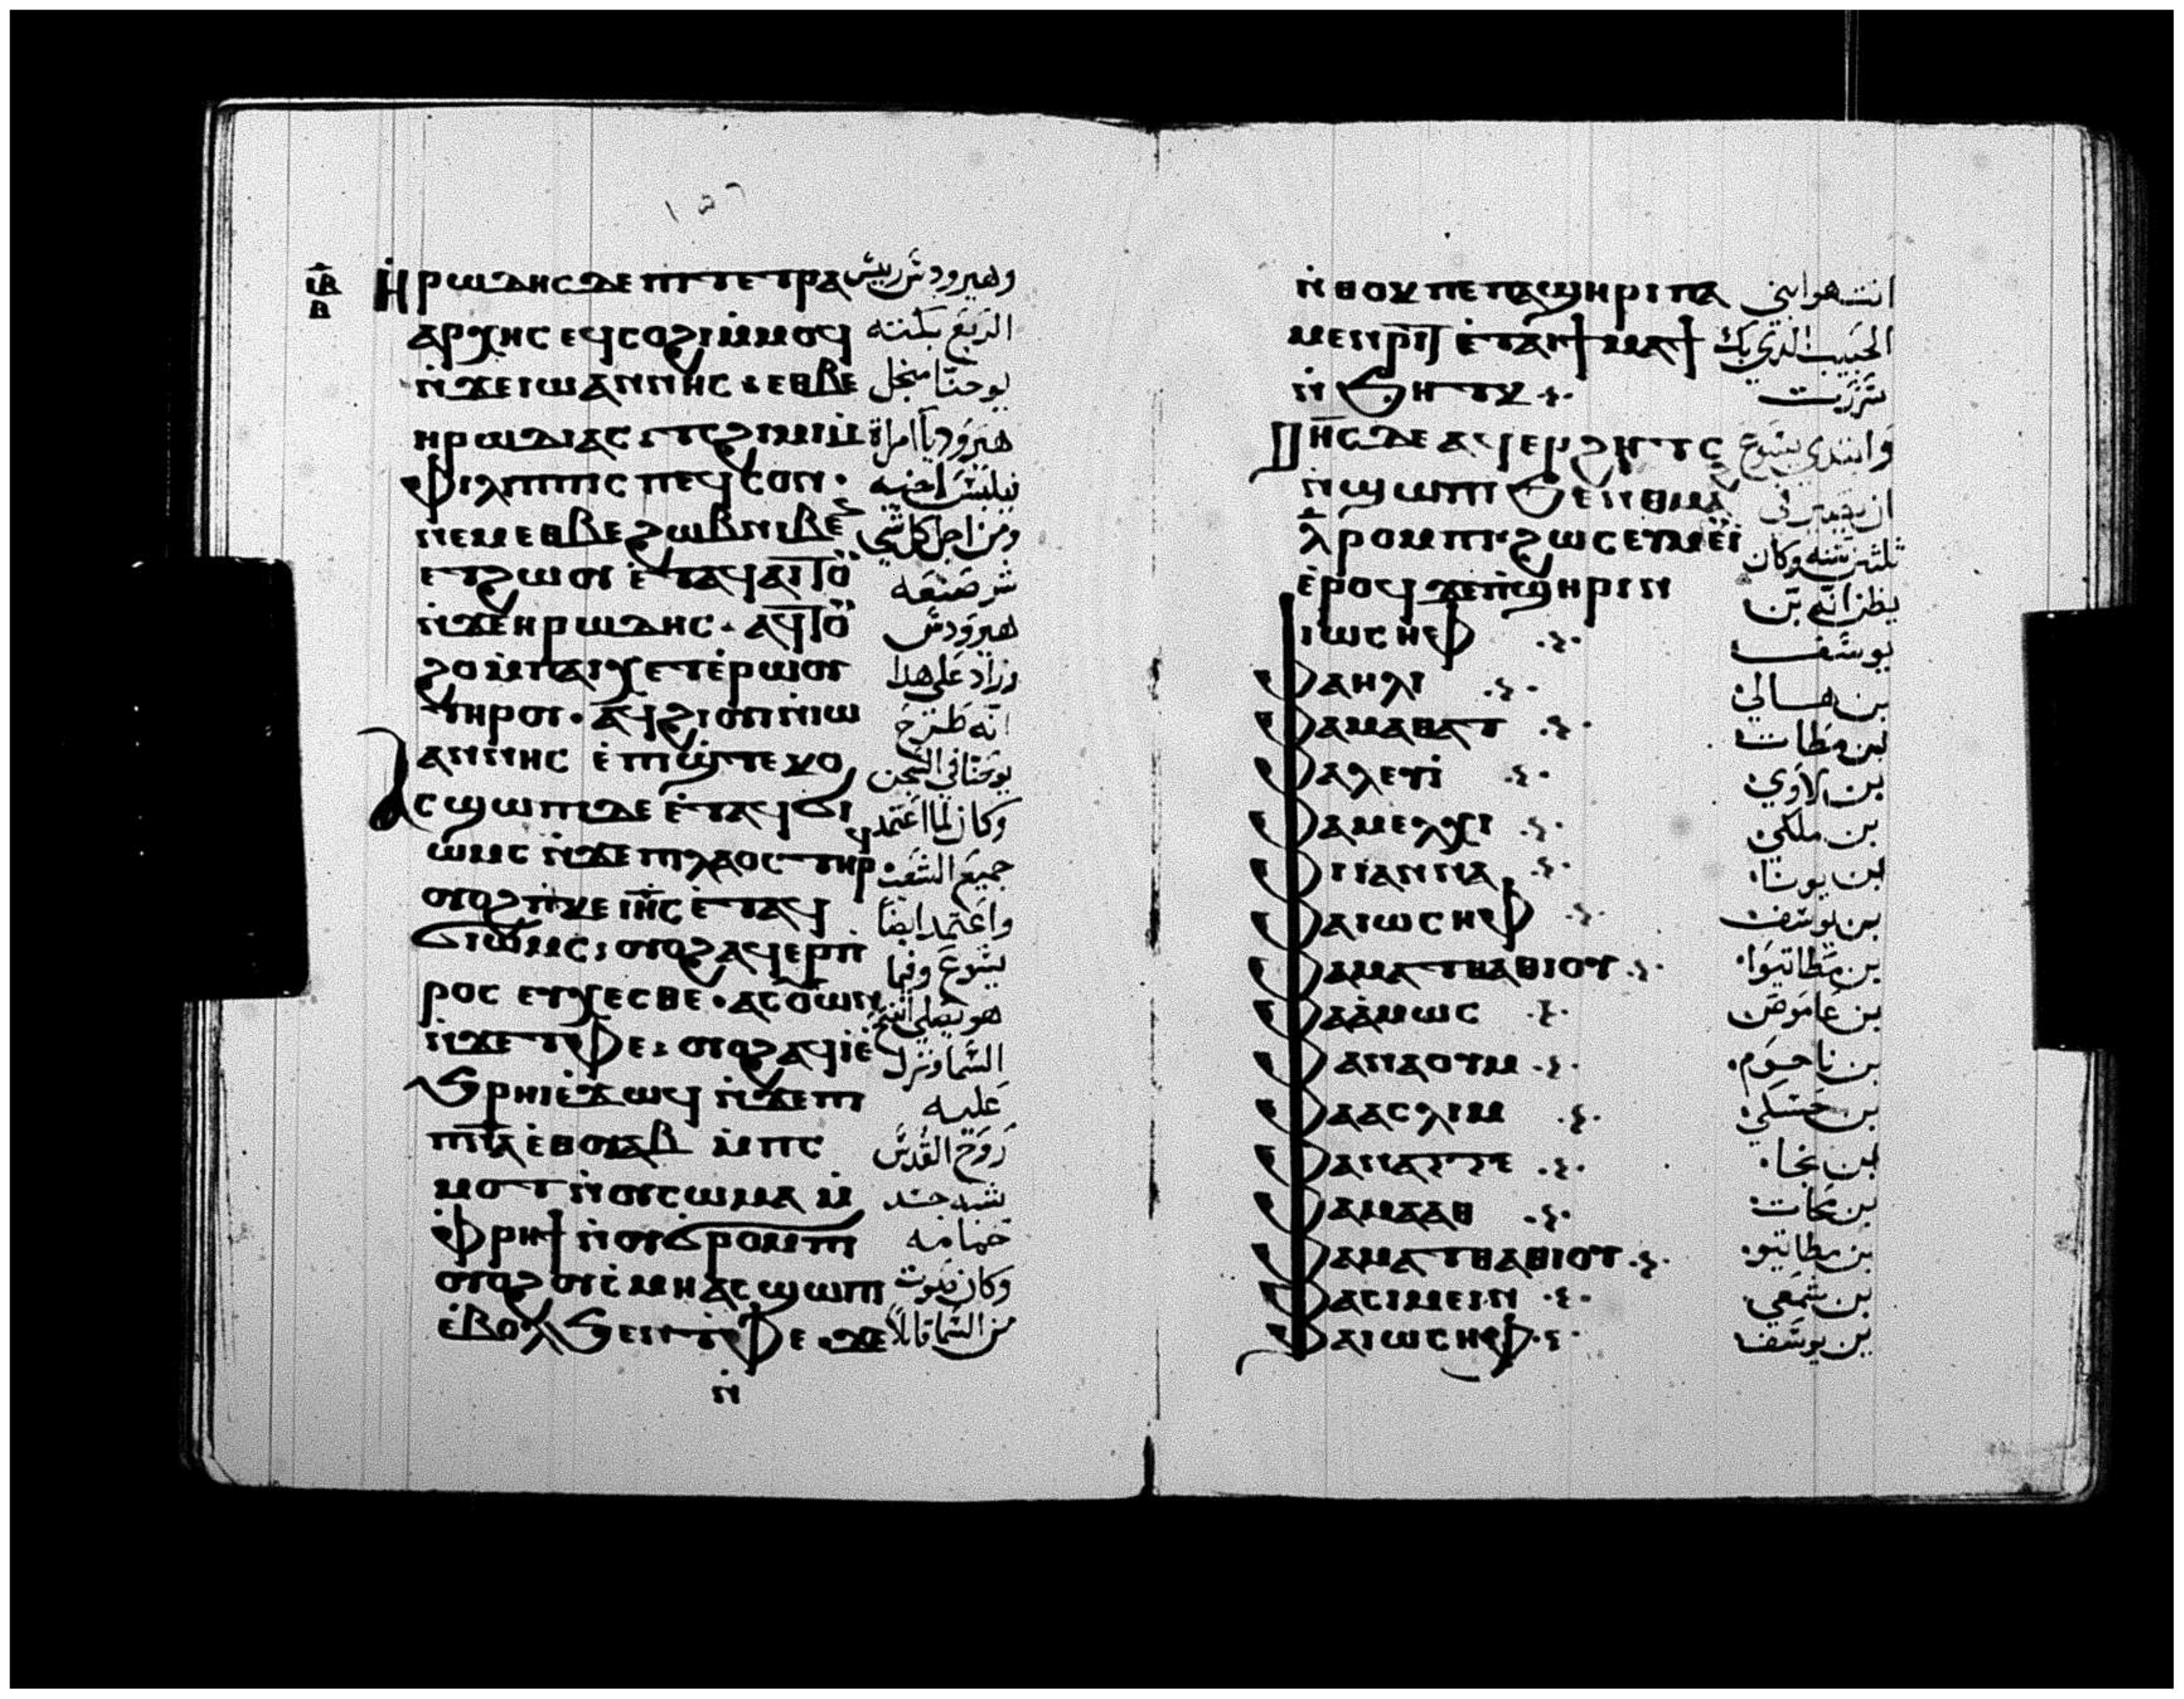 ١٥٦
ⲓⲃ
ⲃ
Ⲏⲣⲱⲇⲏⲥ ⲇⲉ ⲡⲓⲧⲉⲧⲣⲁ وهيرودس رييس
ⲁⲣⲭⲏⲥ ⲉϥⲥⲟϩⲓ ⲙ̇ⲙⲟϥ الربع بكته
ⲛ̇ϫⲉ ⲓⲱⲁⲛⲛⲏⲥ ⲉⲑⲃⲉ يوحنا منجل
ⲏⲣⲱⲇⲓⲁⲥ ⲧⲥϩⲓⲙⲓ ⲙ̇ هيروديا امراة
ⲫⲓⲗⲓⲡⲡⲟⲥ ⲡⲉϥⲥⲟⲛ فيلبس اخيه
ⲛⲉⲙ ⲉⲑⲃⲉ ϩⲱⲃ ⲛⲓⲃⲉⲛ ومن اجل كل شي
ⲉⲧϩⲱⲟⲩ ⲉ̇ⲧⲁϥⲁⲓⲧⲟⲩ شر صنعه
ⲛ̇ϫⲉ ⲏⲣⲱⲇⲏⲥ ⲁϥⲧⲟ هيرودس
ϩⲟ ⲙ̇ⲡⲁⲓⲭⲉⲧ ⲉ̇ⲣⲱⲟⲩ وزاد على هذا
ⲧⲏⲣⲟⲩ ⲁϥϩⲓⲟⲩⲓ ⲛ̇ⲓⲱ انه طرح
ⲁⲛⲛⲏⲥ ⲉ̇ⲡϣ̇ⲧⲉⲕⲟ يوحنا في السجن
Ⲁⲥϣⲱⲡⲓ ⲇⲉ ⲉ̇ⲧⲁϥϭⲓ وكان لما اعتمد
ⲱⲙⲥ ⲛ̇ϫⲉ ⲡⲓⲗⲁⲟⲥ ⲧⲏⲣϥ جميع الشعب
ⲟⲩⲟϩ ⲛ̇ⲕⲉ ⲓⲏⲥ ⲉ̇ⲧⲁϥ واعتمد ايضا
ϭⲓⲱⲙⲥ ⲟⲩⲟϩ ⲁϥⲉⲣⲡ يسوع وفيما
ⲣⲟⲥ ⲉⲩⲭⲉⲥⲑⲉ ⲁⲥⲟⲩⲱⲛ هو يصلي انفتح
ⲛ̇ϫⲉ ⲧⲫⲉ ⲟⲩⲟϩ ⲁϥⲓ̇ⲉ̇ السما ونزل
ϧⲣⲏⲓ ⲉ̇ϫⲱϥ ⲛ̇ϫⲉ ⲡⲓ عليه
ⲡⲛⲁ ⲉⲑⲟⲩⲁⲃ ⲙ̇ⲡⲥ روح القدس
ⲙⲟⲧ ⲛ̇ⲟⲩⲥⲱⲙⲁ ⲙ̇ شبه جسد
ⲫⲣⲏϯ ⲛ̇ⲟⲩϭⲣⲟⲙⲡⲓ حمامه
ⲟⲩⲟϩ ⲟⲩⲥ̇ⲙⲏ ⲁⲥϣⲱⲡⲓ وكان صوت
ⲉ̇ⲃⲟⲗ ϧⲉⲛ ⲧⲫⲉ ϫⲉ من السما قايلا
ⲛ̇
ⲛ̇ⲑⲟⲕ ⲡⲉ ⲡⲁϣⲏⲣⲓ ⲡⲁ انت هو ابني
ⲙⲉⲛⲣⲓⲧ ⲉ̇ⲧⲁⲓϯⲙⲁϯ الحبيب الذي بك
ⲛ̇ϧⲏⲧⲕ سررت
Ⲓⲏⲥ ⲇⲉ ⲁϥⲉⲣϩⲏⲧⲥ وابتدي يسوع
ⲛ̇ϣⲱⲡⲓ ϧⲉⲛ ⲑⲙⲁϩ ان يصير في
ⲗ̄ ⲣⲟⲙⲡⲓ ϩⲱⲥ ⲉⲩⲙⲉⲩⲓ ثلثين سنه وكان
ⲉ̇ⲣⲟϥ ϫⲉ ⲡ̇ϣⲏⲣⲓ ⲛ يظن انه بن
ⲓⲱⲥⲏⲫ يوسف
Ⲫⲁ ⲏⲗⲓ بن هالي
Ⲫⲁ ⲙⲁⲑⲁⲧ بن مطات
Ⲫⲁ ⲗⲉⲩⲓ̇ بن لاوي
Ⲫⲁ ⲙⲉⲗⲭⲓ بن ملكي
Ⲫⲁ ⲓⲁⲛⲛⲁ بن يونا
Ⲫⲁ ⲓⲱⲥⲏⲫ بن يوسف
Ⲫⲁ ⲙⲁⲧⲑⲁⲑⲓⲟⲩ بن مطاتيوا
Ⲫⲁ ⲁ̇ⲙⲱⲥ بن عاموص
Ⲫⲁ ⲛⲁⲟⲩⲙ بن ناحوم
Ⲫⲁ ⲁⲥⲗⲓⲙ بن حسلي
Ⲫⲁ ⲛⲁⲅⲅⲉ بن نجا
Ⲫⲁ ⲙⲁⲁⲑ بن مات
Ⲫⲁ ⲙⲁⲧⲑⲁⲑⲓⲟⲩ بن مطاتيوه
Ⲫⲁ ⲥⲓⲙⲉⲓⲛ بن شمعي
Ⲫⲁ ⲓⲱⲥⲏⲫ بن يوسف